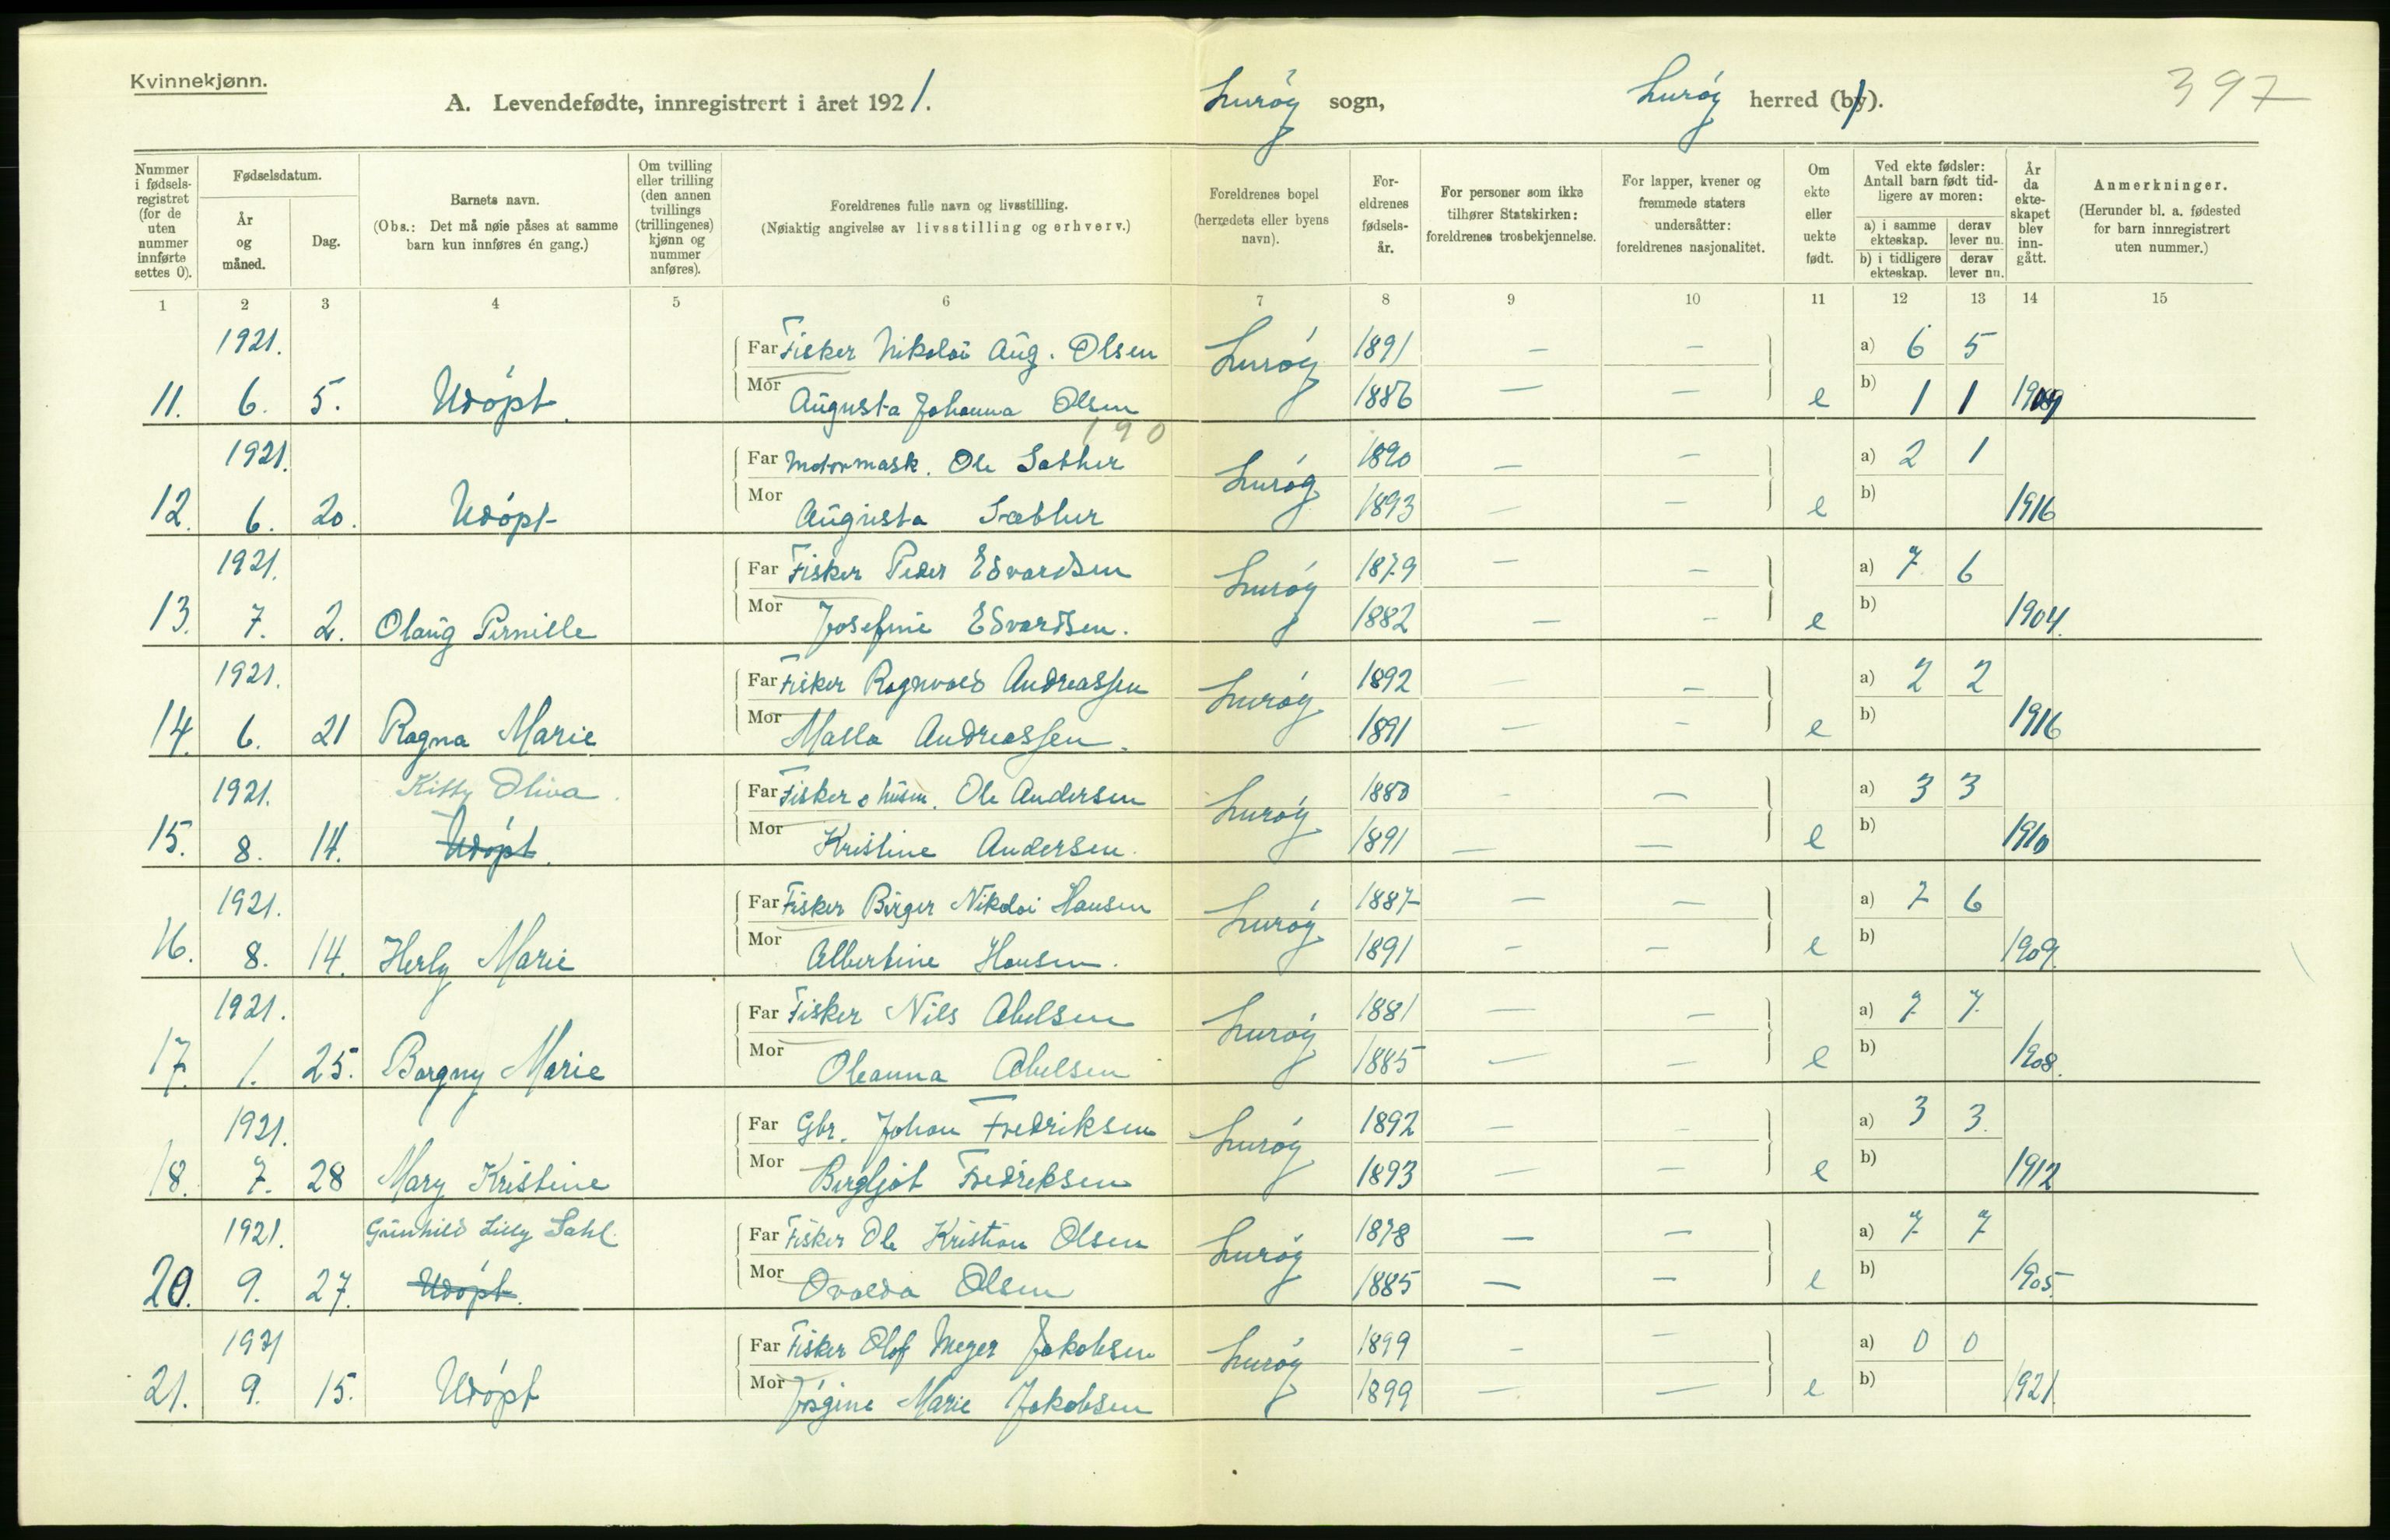 Kvinnekjønn.
A. Levendefødte, innregistrert i året 1921. Lurøy sogn, Lurøy herred (by). 397
Nummer i fødselsregistret (for de uten nummer innførte settes 0).
Fødselsdatum.
År og måned.
Dag.
Barnets navn.
(Obs.: Det må nøie påses at samme barn kun innføres én gang.)
Om tvilling eller trilling (den annen tvillings (trillingenes) kjønn og nummer anføres).
Foreldrenes fulle navn og livsstilling.
(Nøiaktig angivelse av livsstilling og erhverv.)
Foreldrenes bopel (herredets eller byens navn).
Foreldrenes fødselsår.
For personer som ikke tilhører Statskirken: foreldrenes trosbekjennelse.
For lapper, kvener og fremmede staters undersåtter: foreldrenes nasjonalitet.
Om ekte eller uekte født.
Ved ekte fødsler: Antall barn født tidligere av moren:
a) i samme ekteskap. derav lever nu.
b) i tidligere ekteskap. derav lever nu.
År da ekteskapet blev inngått.
Anmerkninger.
(Herunder bl. a. fødested for barn innregistrert uten nummer.)
1 2 3 4 5 6 7 8 9 10 11 12 13 14 15
1921. Far Fisker Nikolai Aug. Olsen Lurøy 1891 — — a) 6 5
11. 6. 5. Udöpt. Mor Augusta Johanna Olsen 1886 — — e b) 1 1 1909
190
1921. Far Motormask. Ole Sæther Lurøy 1890 — — a) 2 1
12. 6. 20. Udöpt Mor Augusta Sæther 1893 — — e b) 1916
1921. Far Fisker Peder Edvardsen Lurøy 1879 — — a) 7 6
13. 7. 2. Olaug Pernille Mor Josefine Edvardsen. 1882 — — e b) 1904.
1921. Far Fisker Ragnvald Andreassen Lurøy 1892 — — a) 2 2
14. 6. 21 Ragna Marie Mor Malla Andreassen. 1891 — — e b) 1916
1921. Kitty Oliva. Far Fisker o husm. Ole Andersen Lurøy 1880 — — a) 3 3
15. 8. 14. Udöpt. Mor Kristine Andersen. 1891 — — e b) 1910
1921. Far Fisker Birger Nikolai Hansen Lurøy 1887 — — a) 7 6
16. 8. 14. Herly Marie Mor Albertine Hansen. 1891 — — e b) 1909.
1921. Far Fisker Nils Abelsen Lurøy 1881 — — a) 7 7
17. 1. 25. Borgny Marie Mor Oleanna Abelsen 1885 — — e b) 1908.
1921. Far Gbr. Johan Fredriksen Lurøy 1892 — — a) 3 3.
18. 7. 28 Mary Kristine Mor Bergljot Fredriksen 1893 — — e b) 1912
1921. Gunhild Lilly Dahl. Far Fisker Ole Kristian Olsen Lurøy 1878 — — a) 7 7
20. 9. 27. Udöpt. Mor Ovalda Olsen 1885 — — e b) 1905.
1921 Far Fisker Olof Meyer Jakobsen Lurøy 1899 — — a) 0 0
21. 9. 15. Udöpt Mor Jörgine Marie Jakobsen 1899 — — e b) 1921.